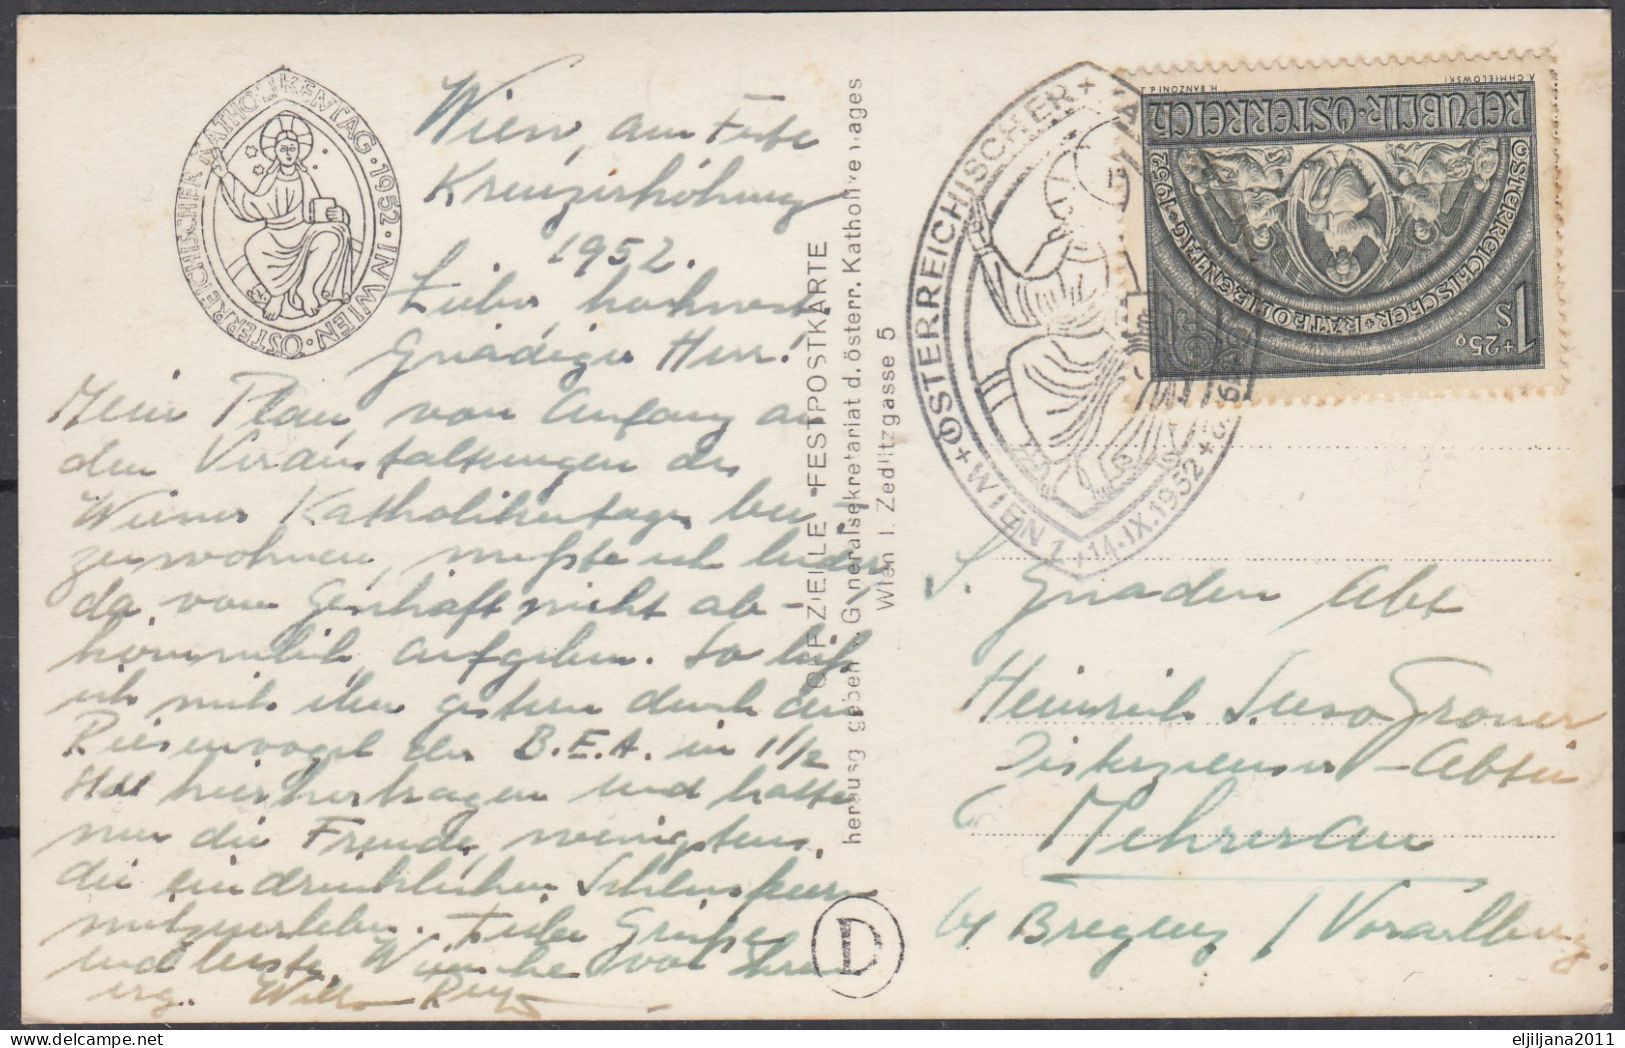 ÖSTERREICHISCHER KATHOLIKENTAG · 1952 · IN WIEN ·
Wien, am Feste
Kreuzerhöhung
1952.
Lieber, hochwst
Gnädiger Herr!
Mein Plan, von Anfang an
den Veranstaltungen des
Wiener Katholikentages bei-
zuwohnen, mußte ich leider
da vom Geschäft nicht ab-
kömmlich, aufgeben. So ließ
ich mich eben gestern durch den
Riesenvogel der B.E.A. in 1 1/2
Std hierhertragen und hatte
nur die Freude, wenigstens
die eindrucklichen Schlussfeiern
mitzuerleben. Liebe Grüße
und beste Wünsche von Ihrem
erg.
OFFIZIELLE FESTPOSTKARTE
herausgegeben Generalsekretariat d. österr. Katholikentages
Wien I. Zedlitzgasse 5
D
+ ÖSTERREICHISCHER +
+ WIEN 1 + 14.IX.1952 +
REPUBLIK · ÖSTERREICH
ÖSTERREICHISCHER · KATHOLIKENTAG · 1952
1 S +25g
H. RANZONI d. J.
A. CHMIELOWSKI
S. Gnaden Abt
Heinrich Suso Groner
Zisterzienser-Abtei
Mehrerau
bei Bregenz / Vorarlberg.
eljiljana2011